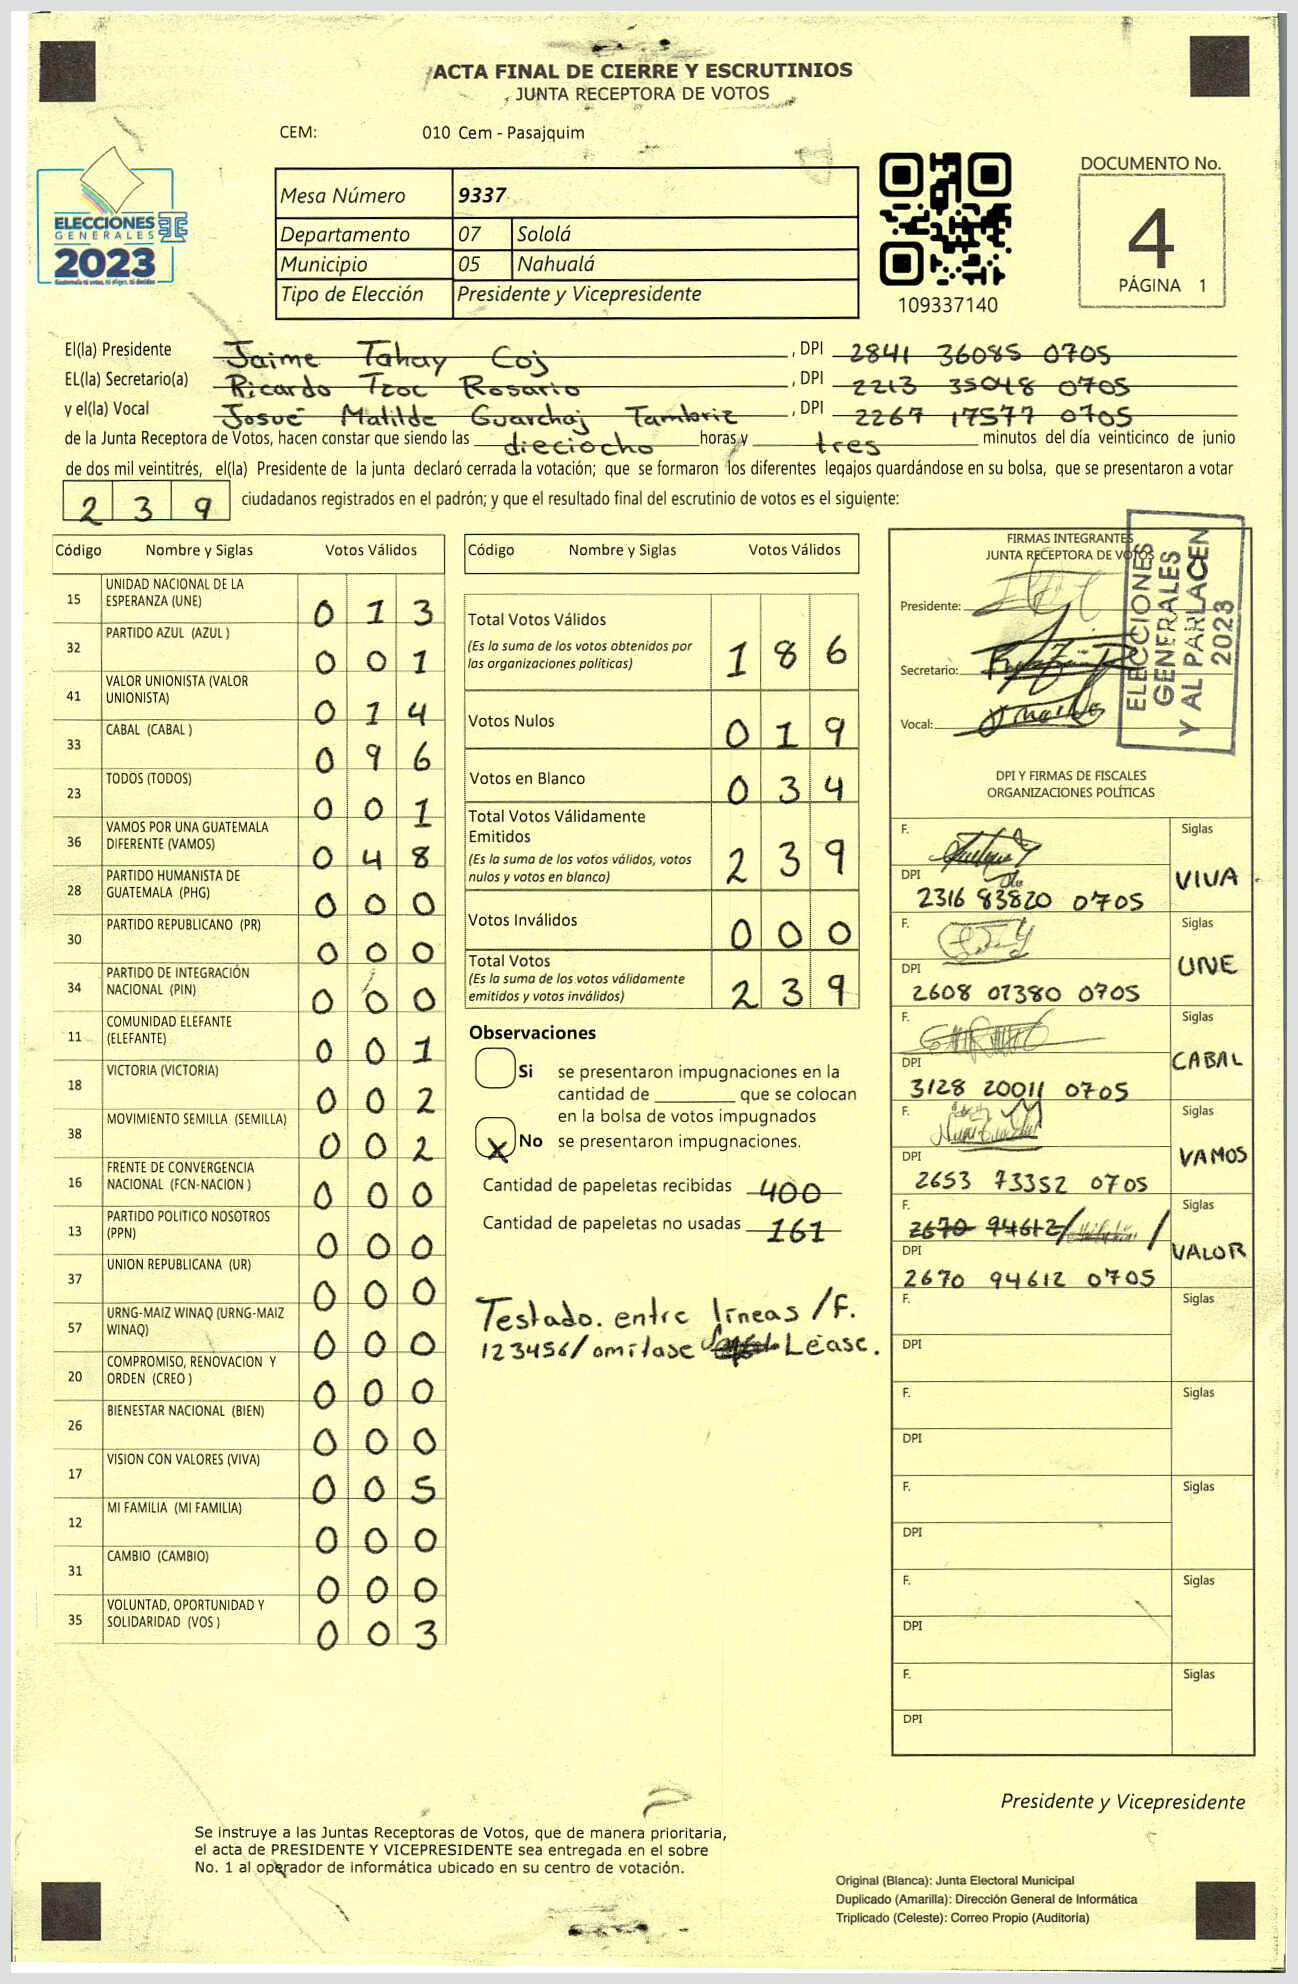 ACTA FINAL DE CIERRE Y ESCRUTINIOS
JUNTA RECEPTORA DE VOTOS
CEM: 010 Cem - Pasajquim
ELECCIONES
GENERALES
2023
Guatemala tú votas, tú eliges, tú decides
Mesa Número 9337
Departamento 07 Sololá
Municipio 05 Nahualá
Tipo de Elección Presidente y Vicepresidente
109337140
DOCUMENTO No.
4
PÁGINA 1
El(la) Presidente Jaime Tahay Coj , DPI 2841 36085 0705
EL(la) Secretario(a) Ricardo Tzoc Rosario , DPI 2213 35048 0705
y el(la) Vocal Josué Matilde Guarchaj Tambriz , DPI 2267 17577 0705
de la Junta Receptora de Votos, hacen constar que siendo las dieciocho horas y tres minutos del día veinticinco de junio
de dos mil veintitrés, el(la) Presidente de la junta declaró cerrada la votación; que se formaron los diferentes legajos guardándose en su bolsa, que se presentaron a votar
239 ciudadanos registrados en el padrón; y que el resultado final del escrutinio de votos es el siguiente:
Código Nombre y Siglas Votos Válidos
15 UNIDAD NACIONAL DE LA
ESPERANZA (UNE) 013
32 PARTIDO AZUL (AZUL ) 001
41 VALOR UNIONISTA (VALOR
UNIONISTA) 014
33 CABAL (CABAL ) 096
23 TODOS (TODOS) 001
36 VAMOS POR UNA GUATEMALA
DIFERENTE (VAMOS) 048
28 PARTIDO HUMANISTA DE
GUATEMALA (PHG) 000
30 PARTIDO REPUBLICANO (PR) 000
34 PARTIDO DE INTEGRACIÓN
NACIONAL (PIN) 000
11 COMUNIDAD ELEFANTE
(ELEFANTE) 001
18 VICTORIA (VICTORIA) 002
38 MOVIMIENTO SEMILLA (SEMILLA) 002
16 FRENTE DE CONVERGENCIA
NACIONAL (FCN-NACION ) 000
13 PARTIDO POLITICO NOSOTROS
(PPN) 000
37 UNION REPUBLICANA (UR) 000
57 URNG-MAIZ WINAQ (URNG-MAIZ
WINAQ) 000
20 COMPROMISO, RENOVACION Y
ORDEN (CREO ) 000
26 BIENESTAR NACIONAL (BIEN) 000
17 VISION CON VALORES (VIVA) 005
12 MI FAMILIA (MI FAMILIA) 000
31 CAMBIO (CAMBIO) 000
35 VOLUNTAD, OPORTUNIDAD Y
SOLIDARIDAD (VOS ) 003
Código Nombre y Siglas Votos Válidos
Total Votos Válidos 186
(Es la suma de los votos obtenidos por
las organizaciones políticas)
Votos Nulos 019
Votos en Blanco 034
Total Votos Válidamente
Emitidos 239
(Es la suma de los votos válidos, votos
nulos y votos en blanco)
Votos Inválidos 000
Total Votos 239
(Es la suma de los votos válidamente
emitidos y votos inválidos)
Observaciones
Si se presentaron impugnaciones en la
cantidad de ________ que se colocan
en la bolsa de votos impugnados
X No se presentaron impugnaciones.
Cantidad de papeletas recibidas 400
Cantidad de papeletas no usadas 161
Testado. entre líneas /F.
123456/ omitase Léase.
FIRMAS INTEGRANTES
JUNTA RECEPTORA DE VOTOS
Presidente:
Secretario:
Vocal:
ELECCIONES
GENERALES
Y AL PARLACEN
2023
DPI Y FIRMAS DE FISCALES
ORGANIZACIONES POLÍTICAS
F. Siglas
DPI 2316 83820 0705 VIVA
F. Siglas
DPI 2608 07380 0705 UNE
F. Siglas
DPI 3128 20011 0705 CABAL
F. Siglas
DPI 2653 73352 0705 VAMOS
F. 2670 94612/ / Siglas
DPI 2670 94612 0705 VALOR
F. Siglas
DPI
F. Siglas
DPI
F. Siglas
DPI
F. Siglas
DPI
F. Siglas
DPI
Presidente y Vicepresidente
Se instruye a las Juntas Receptoras de Votos, que de manera prioritaria,
el acta de PRESIDENTE Y VICEPRESIDENTE sea entregada en el sobre
No. 1 al operador de informática ubicado en su centro de votación.
Original (Blanca): Junta Electoral Municipal
Duplicado (Amarilla): Dirección General de Informática
Triplicado (Celeste): Correo Propio (Auditoría)